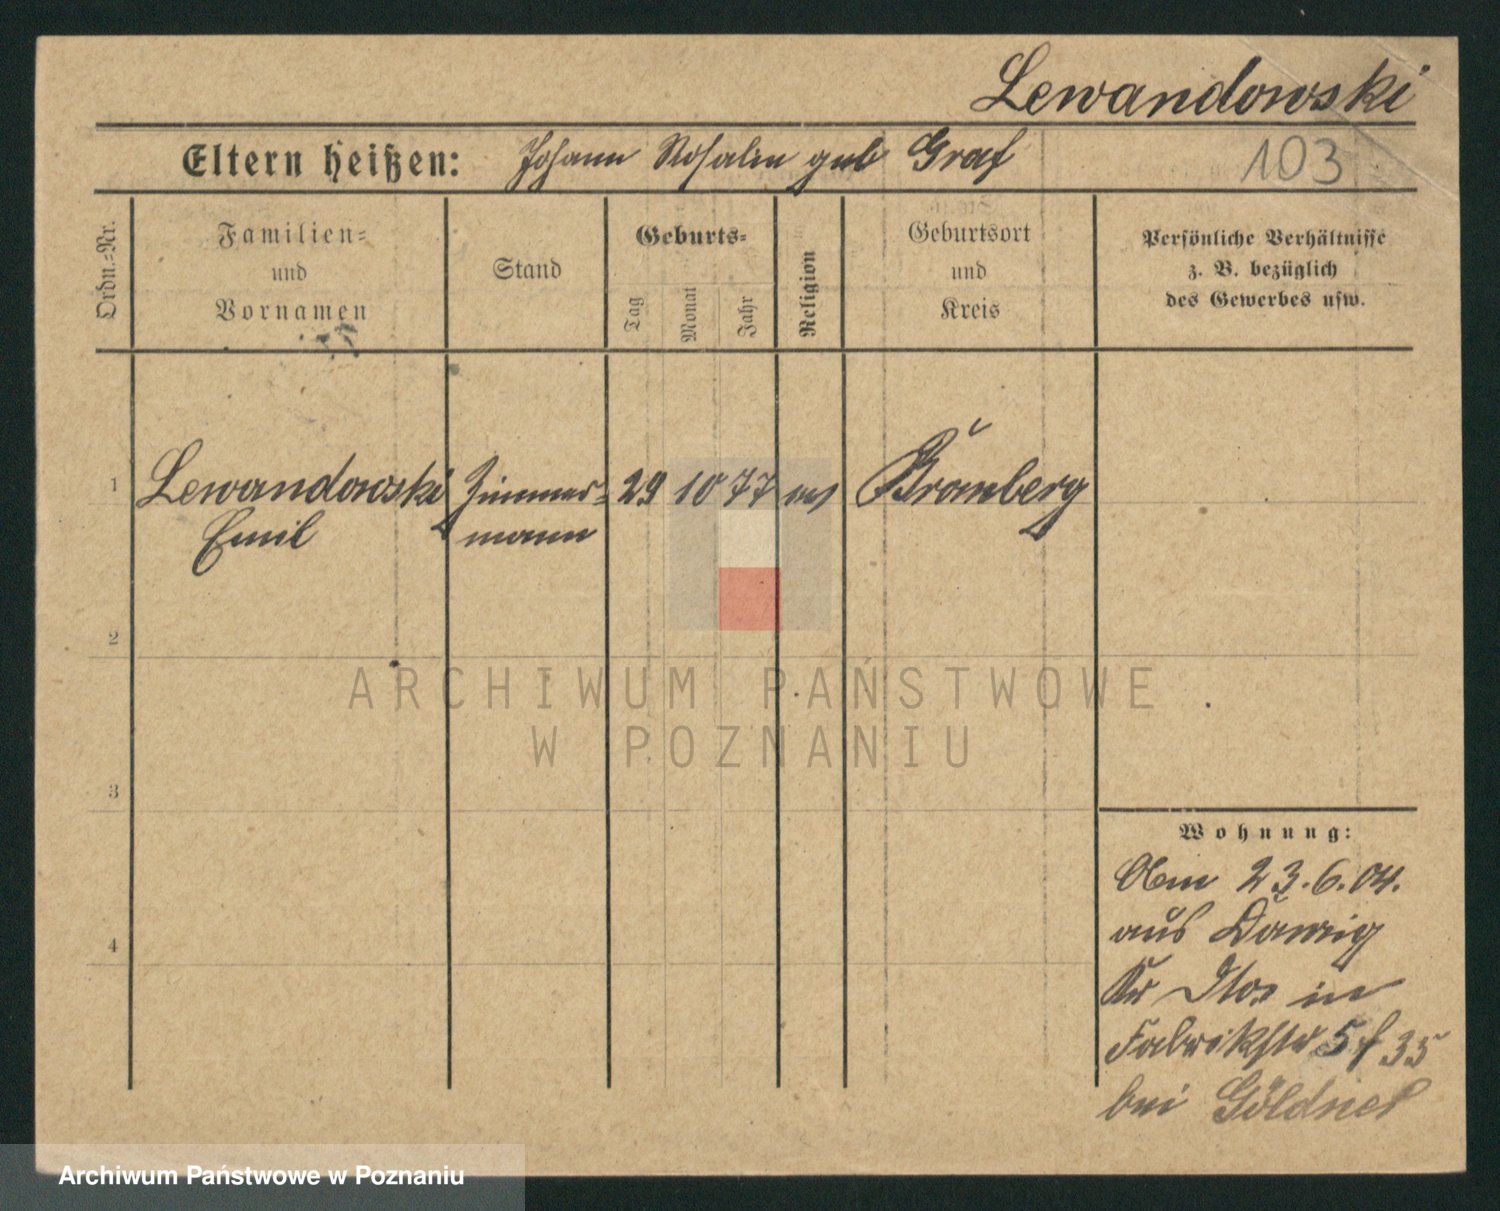 Lewandowski
Eltern heißen: Johann Rosalin geb Graf 103
Ordn.=Nr.
Familien=
und
Vornamen
Stand
Geburts=
Tag
Monat
Jahr
Religion
Geburtsort
und
Kreis
Persönliche Verhältnisse
z. B. bezüglich
des Gewerbes usw.
1 Lewandowski Zimmer= 29 10 77 ev Bromberg
Emil mann
2
3
4
Wohnung:
Am 23.6.04.
aus Danzig
in
Fabrikstr 5 f 35
bei Göldner
ARCHIWUM PAŃSTWOWE
W POZNANIU
Archiwum Państwowe w Poznaniu